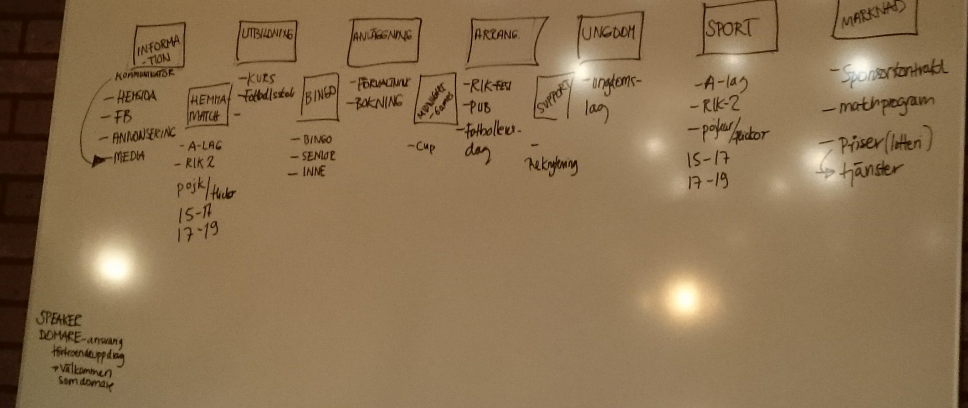 INFORMA
-TION
KOMMUNIKATÖR
- HEMSIDA
- FB
- ANNONSERING
- MEDIA
HEMMA
MATCH
- A-LAG
- RIK 2
pojk/flickor
15-17
17-19
UTBILDNING
- KURS
- Fotbollsskola
-
BINGO
- BINGO
- SENIOR
- INNE
ANLÄGGNING
- FÖRVALTNING
- BOKNING
MIDNIGHT
-Games
- Cup
ARRANG.
- RIK-
- PUB
- Fotbollens-
dag
SUPPORT
-
Rekrytering
UNGDOM
- ungdoms-
lag
SPORT
- A-lag
- RIK-2
- pojkar/flickor
15-17
17-19
MARKNAD
- Sponsorkontrakt
- matchprogram
- Priser (lotteri)
tjänster
SPEAKER
DOMARE-ansvarig
förtroendeuppdrag
→ Välkommen
som domare